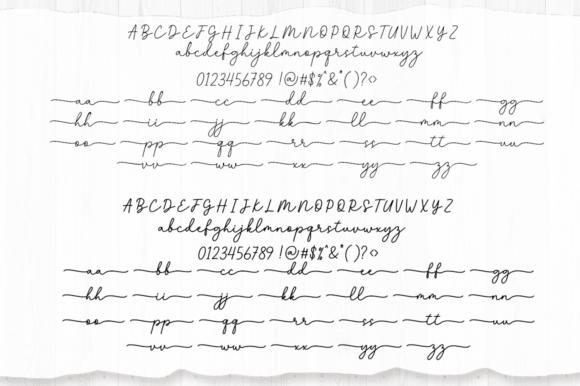 ABCDEFGHIJKLMNOPQRSTUVWXYZ
abcdefghijklmnopqrstuvwxyz
0123456789 !@#$%^&*()?<>
aa bb cc dd ee ff gg
hh ii jj kk ll mm nn
oo pp qq rr ss tt uu
vv ww xx yy zz
ABCDEFGHIJKLMNOPQRSTUVWXYZ
abcdefghijklmnopqrstuvwxyz
0123456789 !@#$%^&*()?<>
aa bb cc dd ee ff gg
hh ii jj kk ll mm nn
oo pp qq rr ss tt uu
vv ww xx yy zz